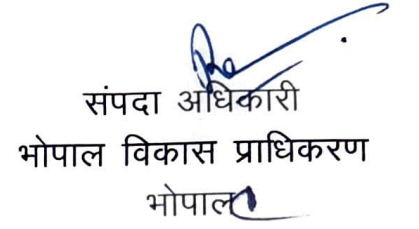 संपदा अधिकारी
भोपाल विकास प्राधिकरण
भोपाल